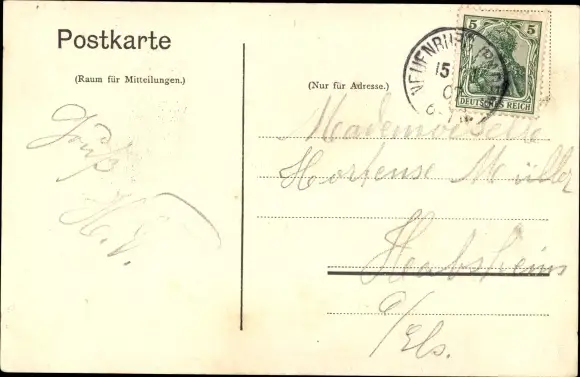 Postkarte
(Raum für Mitteilungen.)
Gruß
H.V.
(Nur für Adresse.)
5 5
DEUTSCHES REICH
NEUENBURG
15
07
Mademoiselle
Hortense Müller
Habsheim
o/Els.